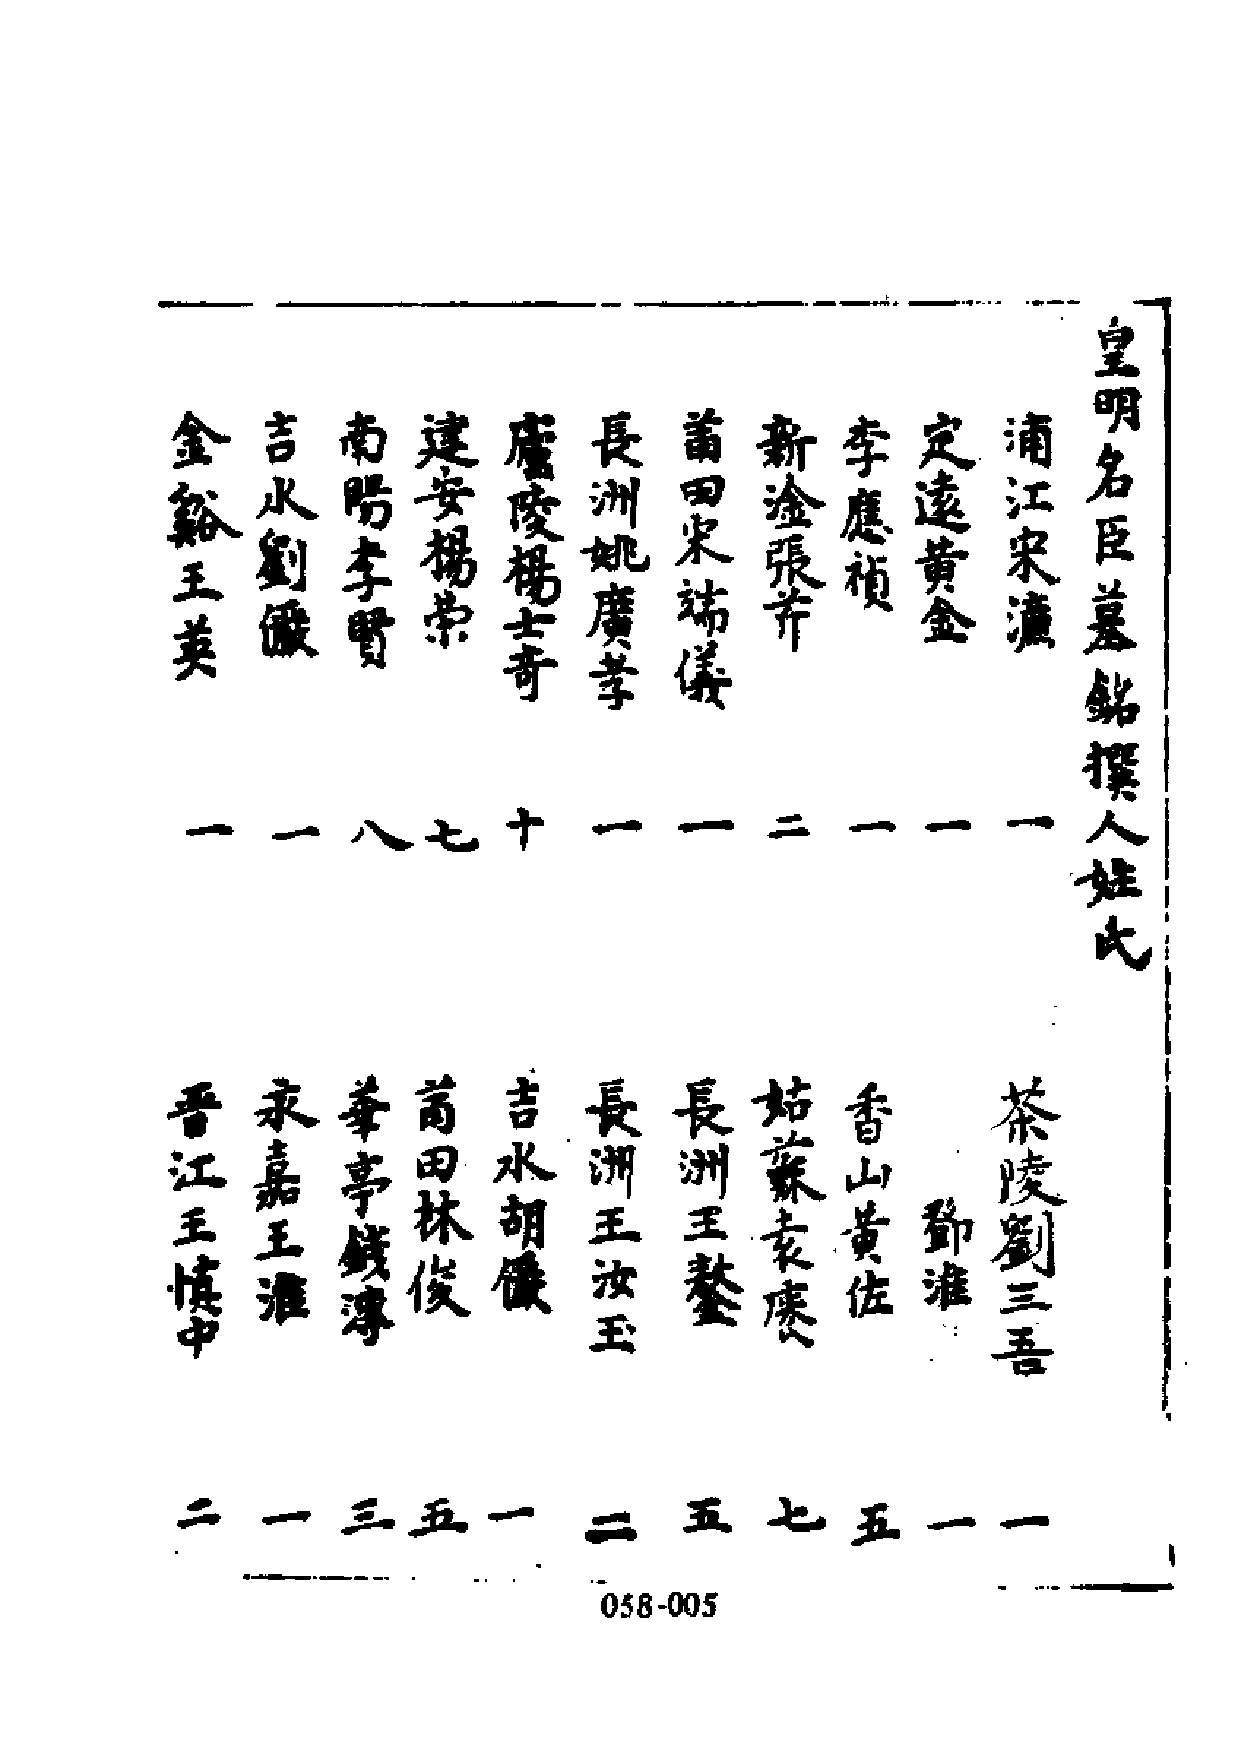 皇明名臣墓銘撰人姓氏
浦江宋濂 一 茶陵劉三吾 一
定遠黃金 一 鄧淮 一
李應禎 一 香山黃佐 五
新淦張芹 二 姑蘇袁袠 七
莆田宋端儀 一 長洲王鏊 五
長洲姚廣孝 一 長洲王汝玉 二
廬陵楊士奇 十 吉水胡儼 一
建安楊榮 七 莆田林俊 五
南陽李賢 八 華亭錢溥 三
吉水劉儼 一 永嘉王淮 一
金谿王英 一 晉江王慎中 二
058-005